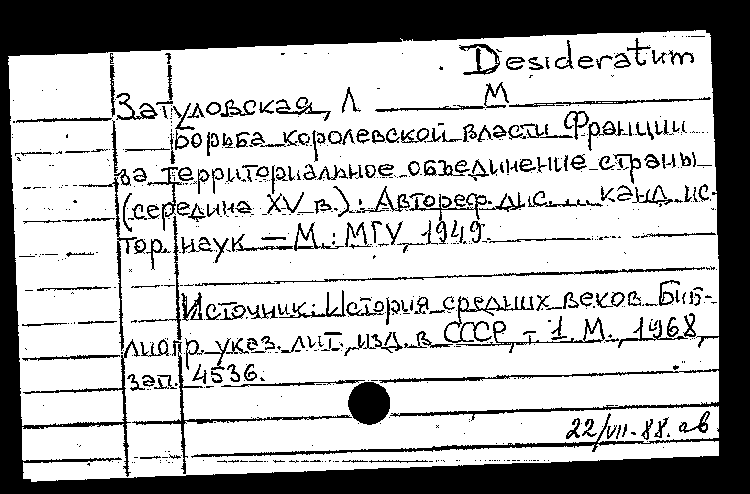 Desideratum
Затуловская, Л М
Борьба королевской власти Франции
за территориальное объединение страны
(середина XV в.): Автореф. дис. ... канд. ис-
тор. наук — М.: МГУ, 1949.
Источник: История средних веков. Биб-
лиогр. указ. лит., изд. в СССР, т. 1. М., 1968,
зап. 4536.
22/VII-88. ав